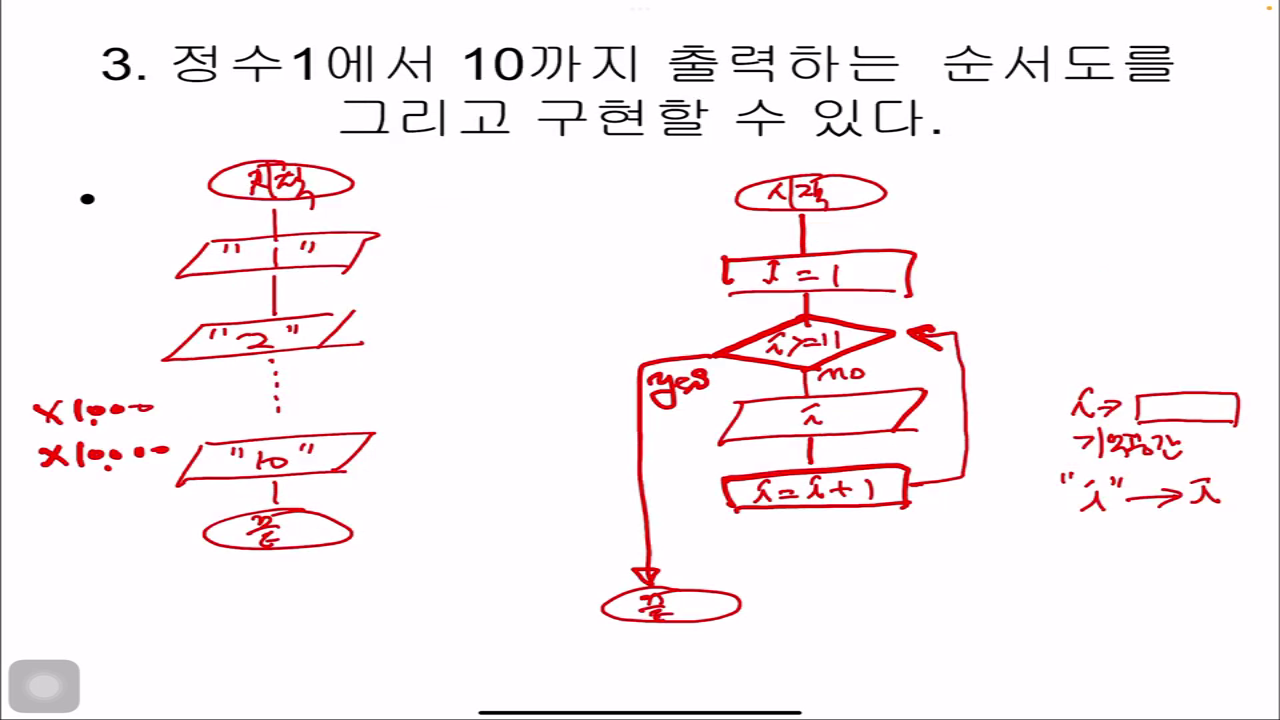 3. 정수1에서 10까지 출력하는 순서도를
그리고 구현할 수 있다.
•
시작
" "
"2"
"10"
끝
x10000
시작
I = 1
i >= 11
yes
no
i
i = i + 1
끝
i →
기억공간
"i" → i